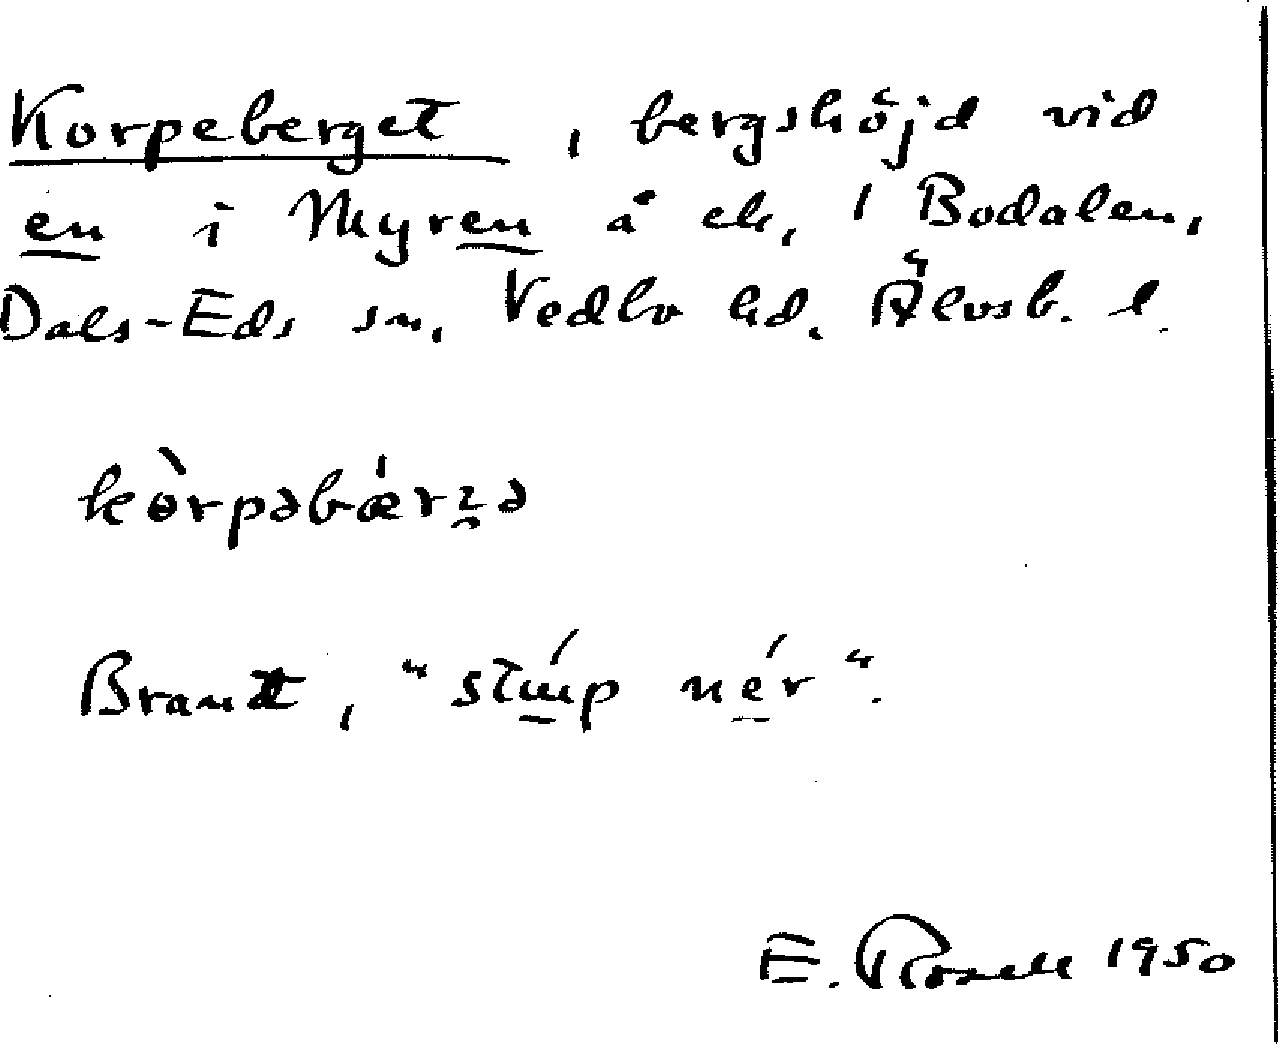 Korpeberget, bergshöjd vid
en i Myren å ek. 1 Bodalen,
Dals-Eds sn, Vedbo hd. Älvsb. l.
kòrpəbǽrʐə
Brant, "stup nér".
E. Rosell 1950